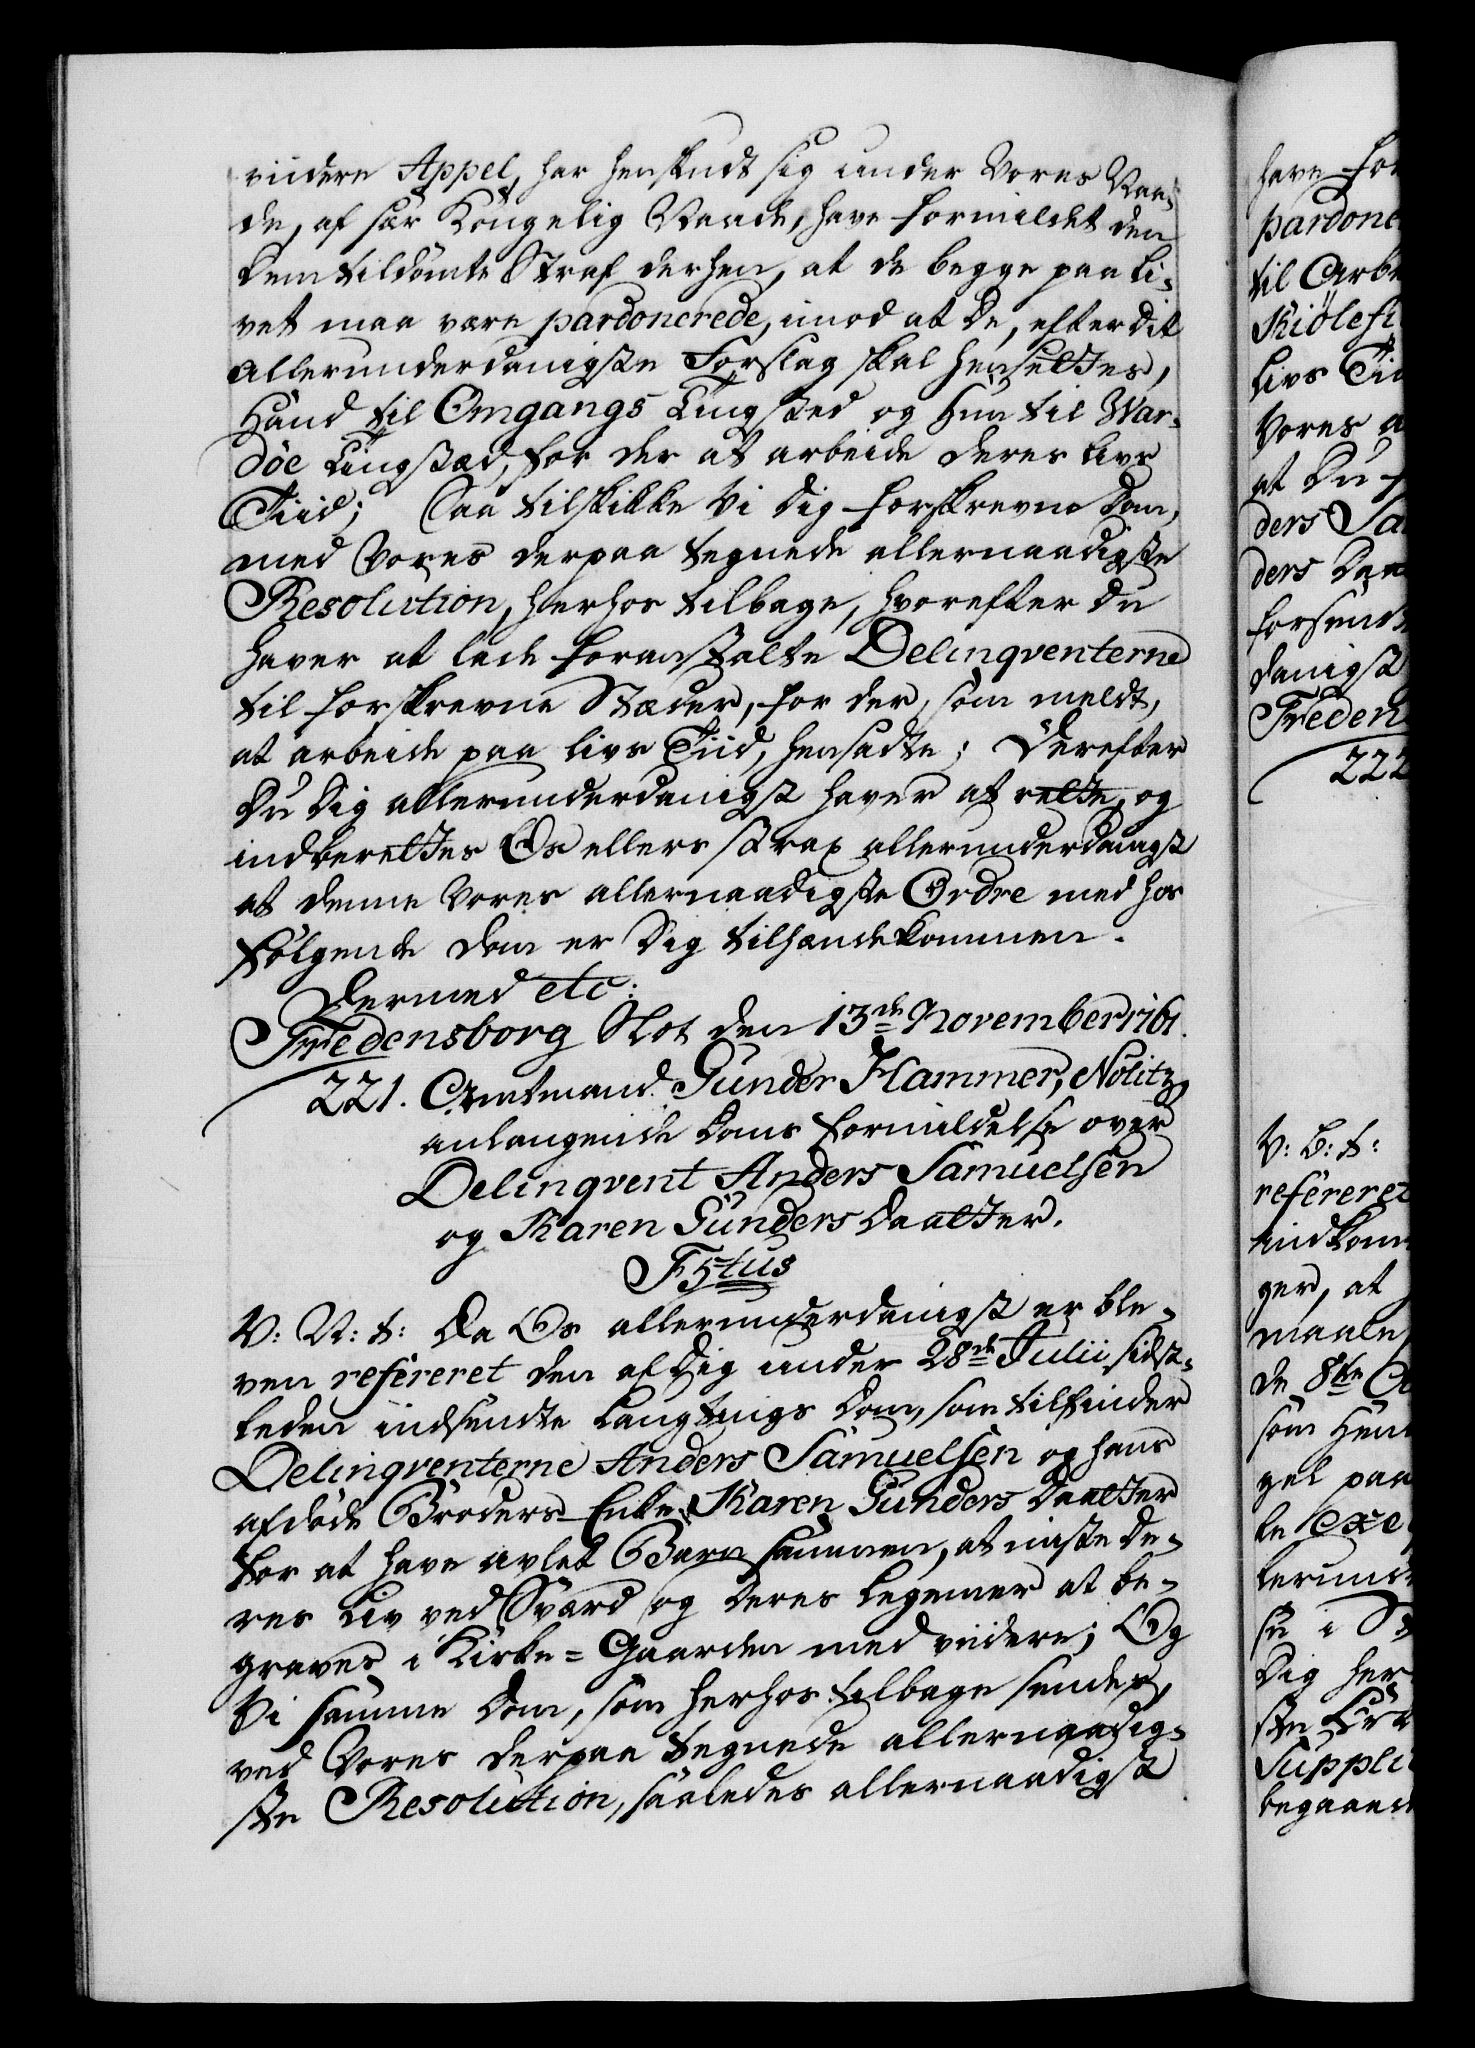 viidere Appel, har henskudt sig under Vores Naa-
de, af sær Kongelig Naade, have formildet den
dem tildömte Straf derhen, at de begge paa Li-
vet maa være pardonerede, imod at De, efter dit
allerunderdanigste Forslag skal hensettes,
Hand til Omgangs Tingsted og Hun til War-
döe Tingstæd, for der at arbeide deres Livs
Tiid; Saa tilskikke Vi Dig forskrevne Dom,
med Vores derpaa tegnede allernaadigste
Resolution, hierhos tilbage, hvorefter Du
haver at lade foranstalte Delinqventerne
til forskrevne Stæder, for der, som meldt,
at arbeide paa livs Tiid, hensadte; Derefter
Du Dig allerunderdanigst haver at rette, og
indberettes Os ellers strax allerunderdanigst
at denne Vores allernaadigste Ordre med hos
følgende Dom er Dig tilhændekommen.
Dermed etc:
Fredensborg Slot den 13de November 1761.
221. Amtmand Gunder Hammer, Notitz
anlangende Doms formildelse over
Delinqvent Anders Samuelsen
og Karen Gunders Daatter.
F5tus
V: N: t: Da Os allerunderdanigst er ble-
ven refereret den af Dig under 28de Julii sidst-
leden indsendte Laugtings Dom, som tilfinder
Delinqventerne Anders Samuelsen og hans
afdöde Broders Enke Karen Gunders Daatter
for at have avlet Barn sammen, at miste de-
res Liv ved Sværd og deres Legemer at be-
graves i Kirke-Gaarden med viidere; Og
Vi samme Dom, som herhos tilbage sendes,
ved Vores derpaa tegnede allernaadig-
ste Resolution, saaledes allernaadigst
have for
pardone
til Arbe
Kiölefi
livs Tii
Vores a
at Du
ders Sa
ders Daa
forsend
danigst
Freden
222
V: B: t:
referere
indkom
ger, at
maale
de 8te
som Hun
gel paa
le exe
lerund
se i
Dig her
ste
Suppli
begaaed